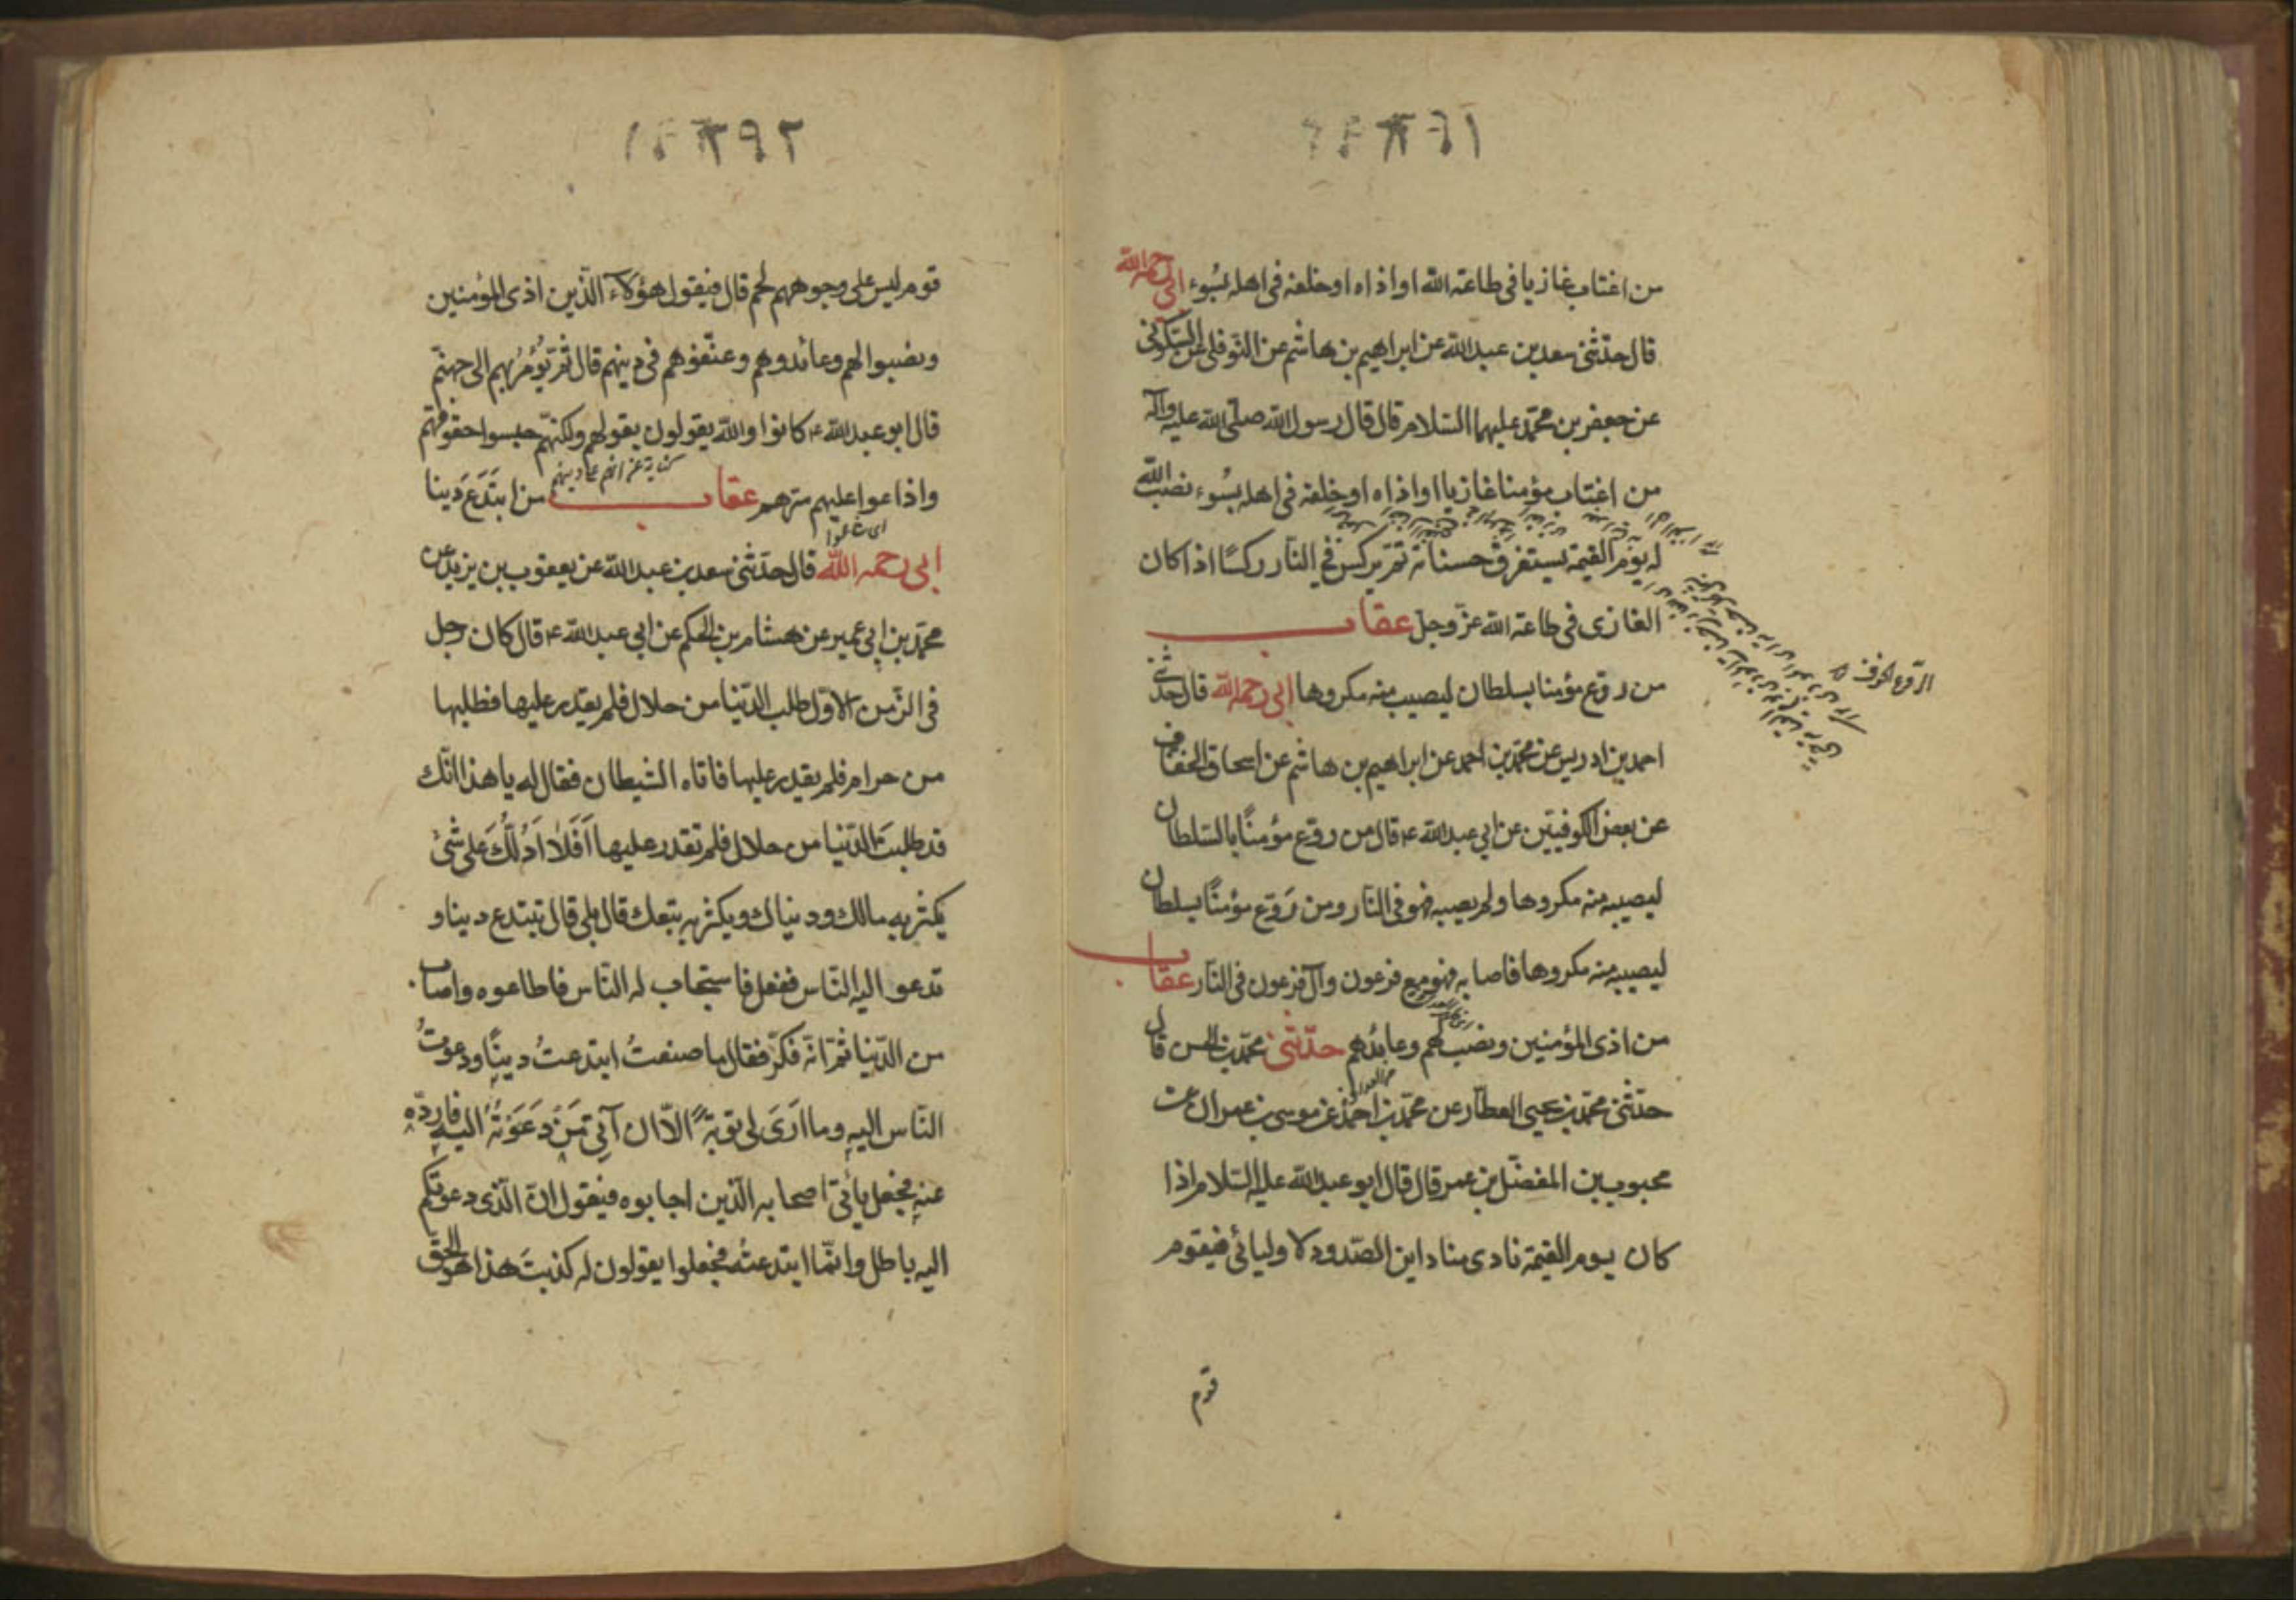 من اغتاب غازيا فى طاعة الله او اذاه او خلفه فى اهله بسُوء ابى رحمه الله
قال حدّثنى سعد بن عبد الله عن ابراهيم بن هاشم عن النّوفلى عن السّكونى
عن جعفر بن محمّد عليهما السّلام قال قال رسول الله صلّى الله عليه وآله
من اغتاب مؤمنا غازيا او اذاه او خلفه فى اهله بسُوء نصب الله
له يوم القيمة يستغرق حسناته ثمّ يركس فى النّار ركسًا اذا كان
الغازى فى طاعة الله عزّ وجلّ عقاب
من روّع مؤمنا بسلطان ليصيب منه مكروها ابى رحمه الله قال حدّثنى
احمد بن ادريس عن محمّد بن احمد عن ابراهيم بن هاشم عن اسحاق الخفّاف
عن بعض الكوفيّين عن ابى عبد الله ع قال من روّع مؤمنًا بالسّلطان
ليصيبه منه مكروها ولم يصيبه فهو فى النّار ومن رَوّع مؤمنًا بسلطان
ليصيبه منه مكروها فاصابه فهو مع فرعون وآل فرعون فى النّار عقاب
من اذى المؤمنين ونصب لهم وعاندهم حدّثنى محمّد بن الحسن قال
حدّثنى محمّد بن يحيى العطّار عن محمّد بن احمد عن موسى بن عمران عن
محبوب بن المفضّل بن عمر قال قال ابو عبد الله عليه السّلام اذا
كان يوم القيمة نادى مناد اين الصّدود لاوليائى فيقوم
قوم
الرّوع الخوف
٢٩٢
قوم ليس على وجوههم لحم قال فيقول هؤلاء الّذين اذى المؤمنين
ونصبوا لهم وعاندوهم وعنّفوهم فى دينهم قال ثمّ يُؤمَرُ بهم الى جهنّم
قال ابو عبد الله ع كانوا والله يقولون بقولهم ولكنّهم حبسوا حقوقهم
واذاعوا عليهم سرّهم عقاب من ابتَدَعَ دينا
اى شاعوا
ابى رحمه الله قال حدّثنى سعد بن عبد الله عن يعقوب بن يزيد عن
محمّد بن ابى عمير عن هشام بن الحكم عن ابى عبد الله ع قال كان رجل
فى الزّمن الاوّل طلب الدّنيا من حلال فلم يقدر عليها فطلبها
من حرام فلم يقدر عليها فاتاه الشّيطان فقال له يا هذا انّك
قد طلبتَ الدّنيا من حلال فلم تقدر عليها اَفَلَا اَدُلُّكَ على شئ
يكثر به مالك ودنياك ويكثر به تبعك قال بلى قال تبتدع دينا و
تدعو اليه النّاس ففعل فاستجاب له النّاس فاطاعوه واصاب
من الدّنيا ثمّ انّه فكّر فقال ما صنعتُ ابتدعتُ دينًا ودعوتُ
النّاس اليه وما اَرَىَ لى توبةً الّا ان آتِىَ مَنْ دَعَوتُهُ اليه فاردّه
عنه فجعل يأتى اصحابه الّذين اجابوه فيقول انّ الّذى دعوتكم
اليه باطل وانّما ابتدعته فجعلوا يقولون له كذبتَ هذا هو الحقّ